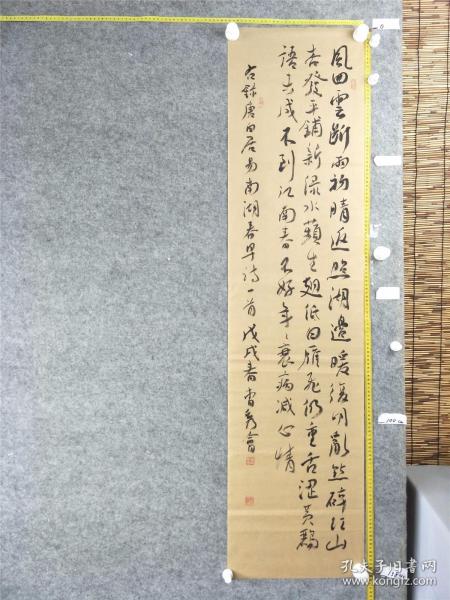 風回雲斷雨初晴返照湖邊暖復明亂點碎紅山
杏發平鋪新綠水蘋生翅低白雁飛仍重舌澀黃鸝
語未成不到江南春不好年々衰病減心情
右錄唐白居易南湖春早詩一首 戊戌春
孔夫子旧书网